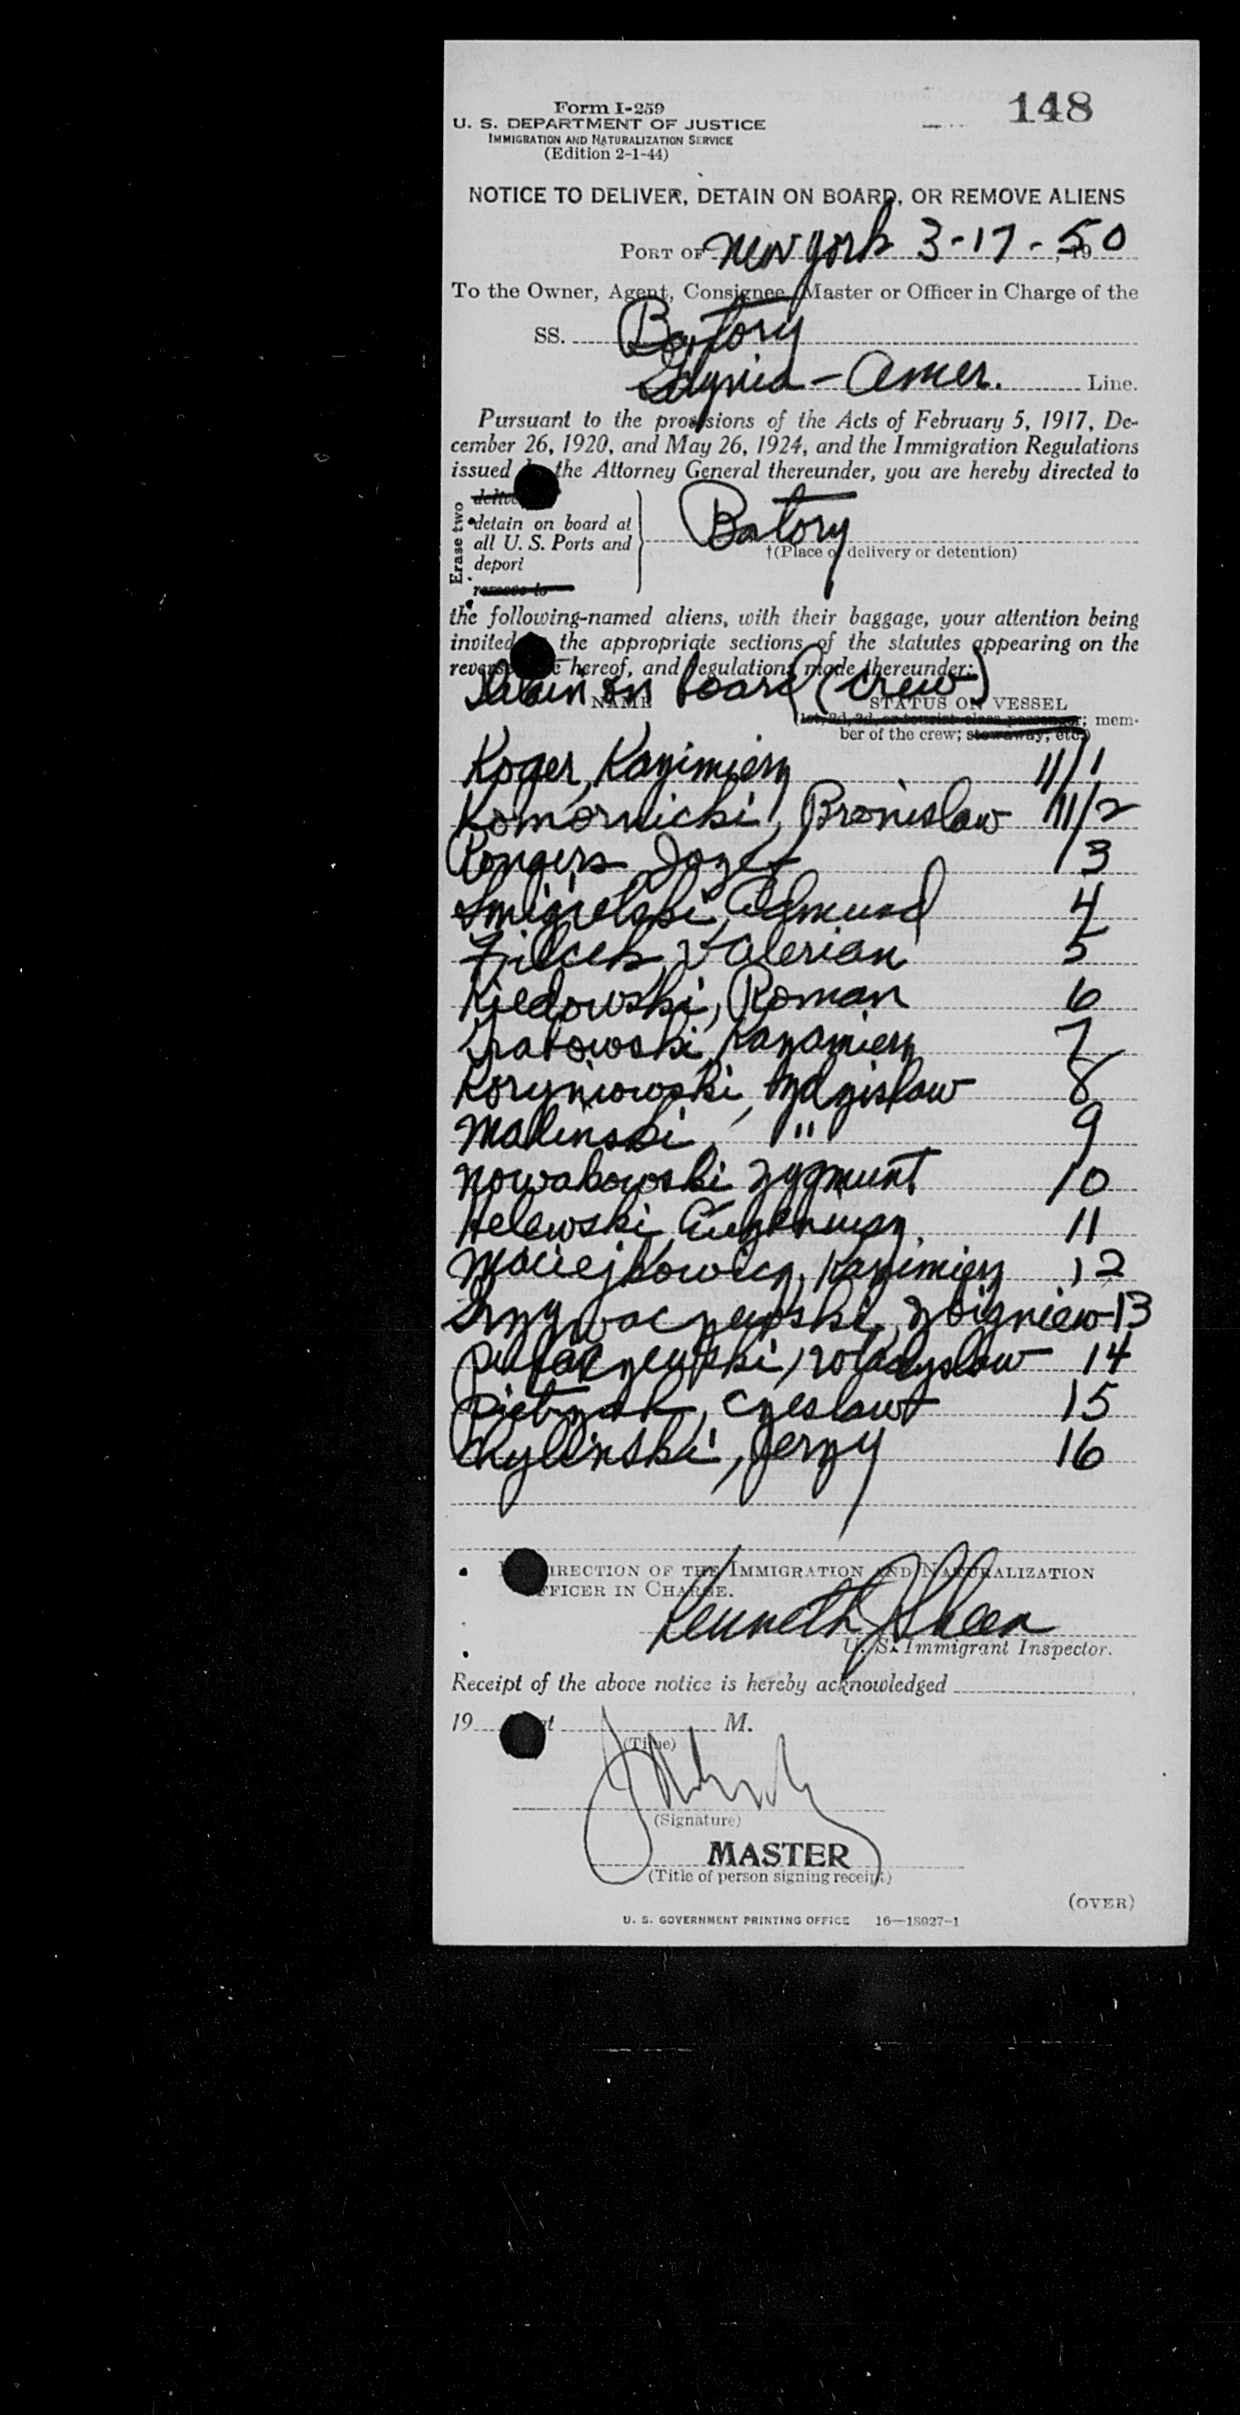 148
Form I-259
U. S. DEPARTMENT OF JUSTICE
IMMIGRATION AND NATURALIZATION SERVICE
(Edition 2-1-44)
NOTICE TO DELIVER, DETAIN ON BOARD, OR REMOVE ALIENS
PORT OF New York 3-17-, 1950
To the Owner, Agent, Consignee, Master or Officer in Charge of the
SS. Batory
Gdynia - Amer. Line.
Pursuant to the provisions of the Acts of February 5, 1917, De-
cember 26, 1920, and May 26, 1924, and the Immigration Regulations
issued the Attorney General thereunder, you are hereby directed to
Erase two
detain on board at
all U. S. Ports and
deport
remove to
Batory
†(Place of delivery or detention)
the following-named aliens, with their baggage, your attention being
invited the appropriate sections of the statutes appearing on the
hereof, and regulations made thereunder:
Detain on board (crew)
NAME STATUS ON VESSEL
(1st, 2d, 3d, or tourist class passenger; mem-
ber of the crew; stowaway, etc.)
Koger, Kazimierz 11/1
Komornicki, Bronislaw 11/2
Jozef 13
Smigielski, Edmund 4
Valerian 5
Kiedowski, Roman 6
7
Zdzislaw 8
Malinski, " 9
Nowakowski Zygmunt 10
Helewski 11
Kazimierz 12
Zbigniew 13
Wladyslaw 14
Czeslaw 15
Jerzy 16
DIRECTION OF THE IMMIGRATION AND NATURALIZATION
OFFICER IN CHARGE.
Kenneth J Shea
U. S. Immigrant Inspector.
Receipt of the above notice is hereby acknowledged
19 at M.
(Time)
(Signature)
MASTER
(Title of person signing receipt)
(OVER)
U. S. GOVERNMENT PRINTING OFFICE 16—18027-1